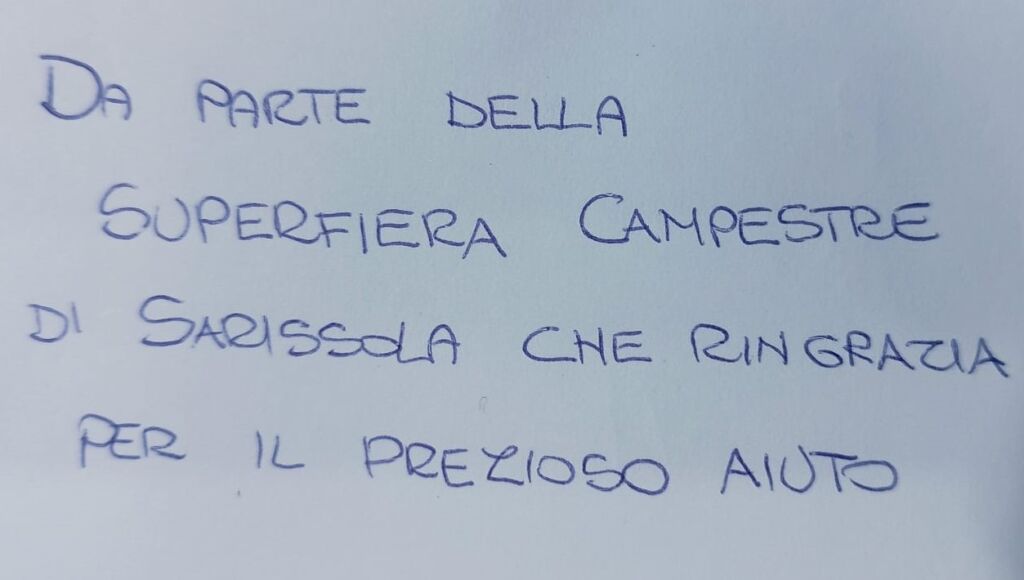 DA PARTE DELLA
SUPERFIERA CAMPESTRE
DI SARISSOLA CHE RINGRAZIA
PER IL PREZIOSO AIUTO